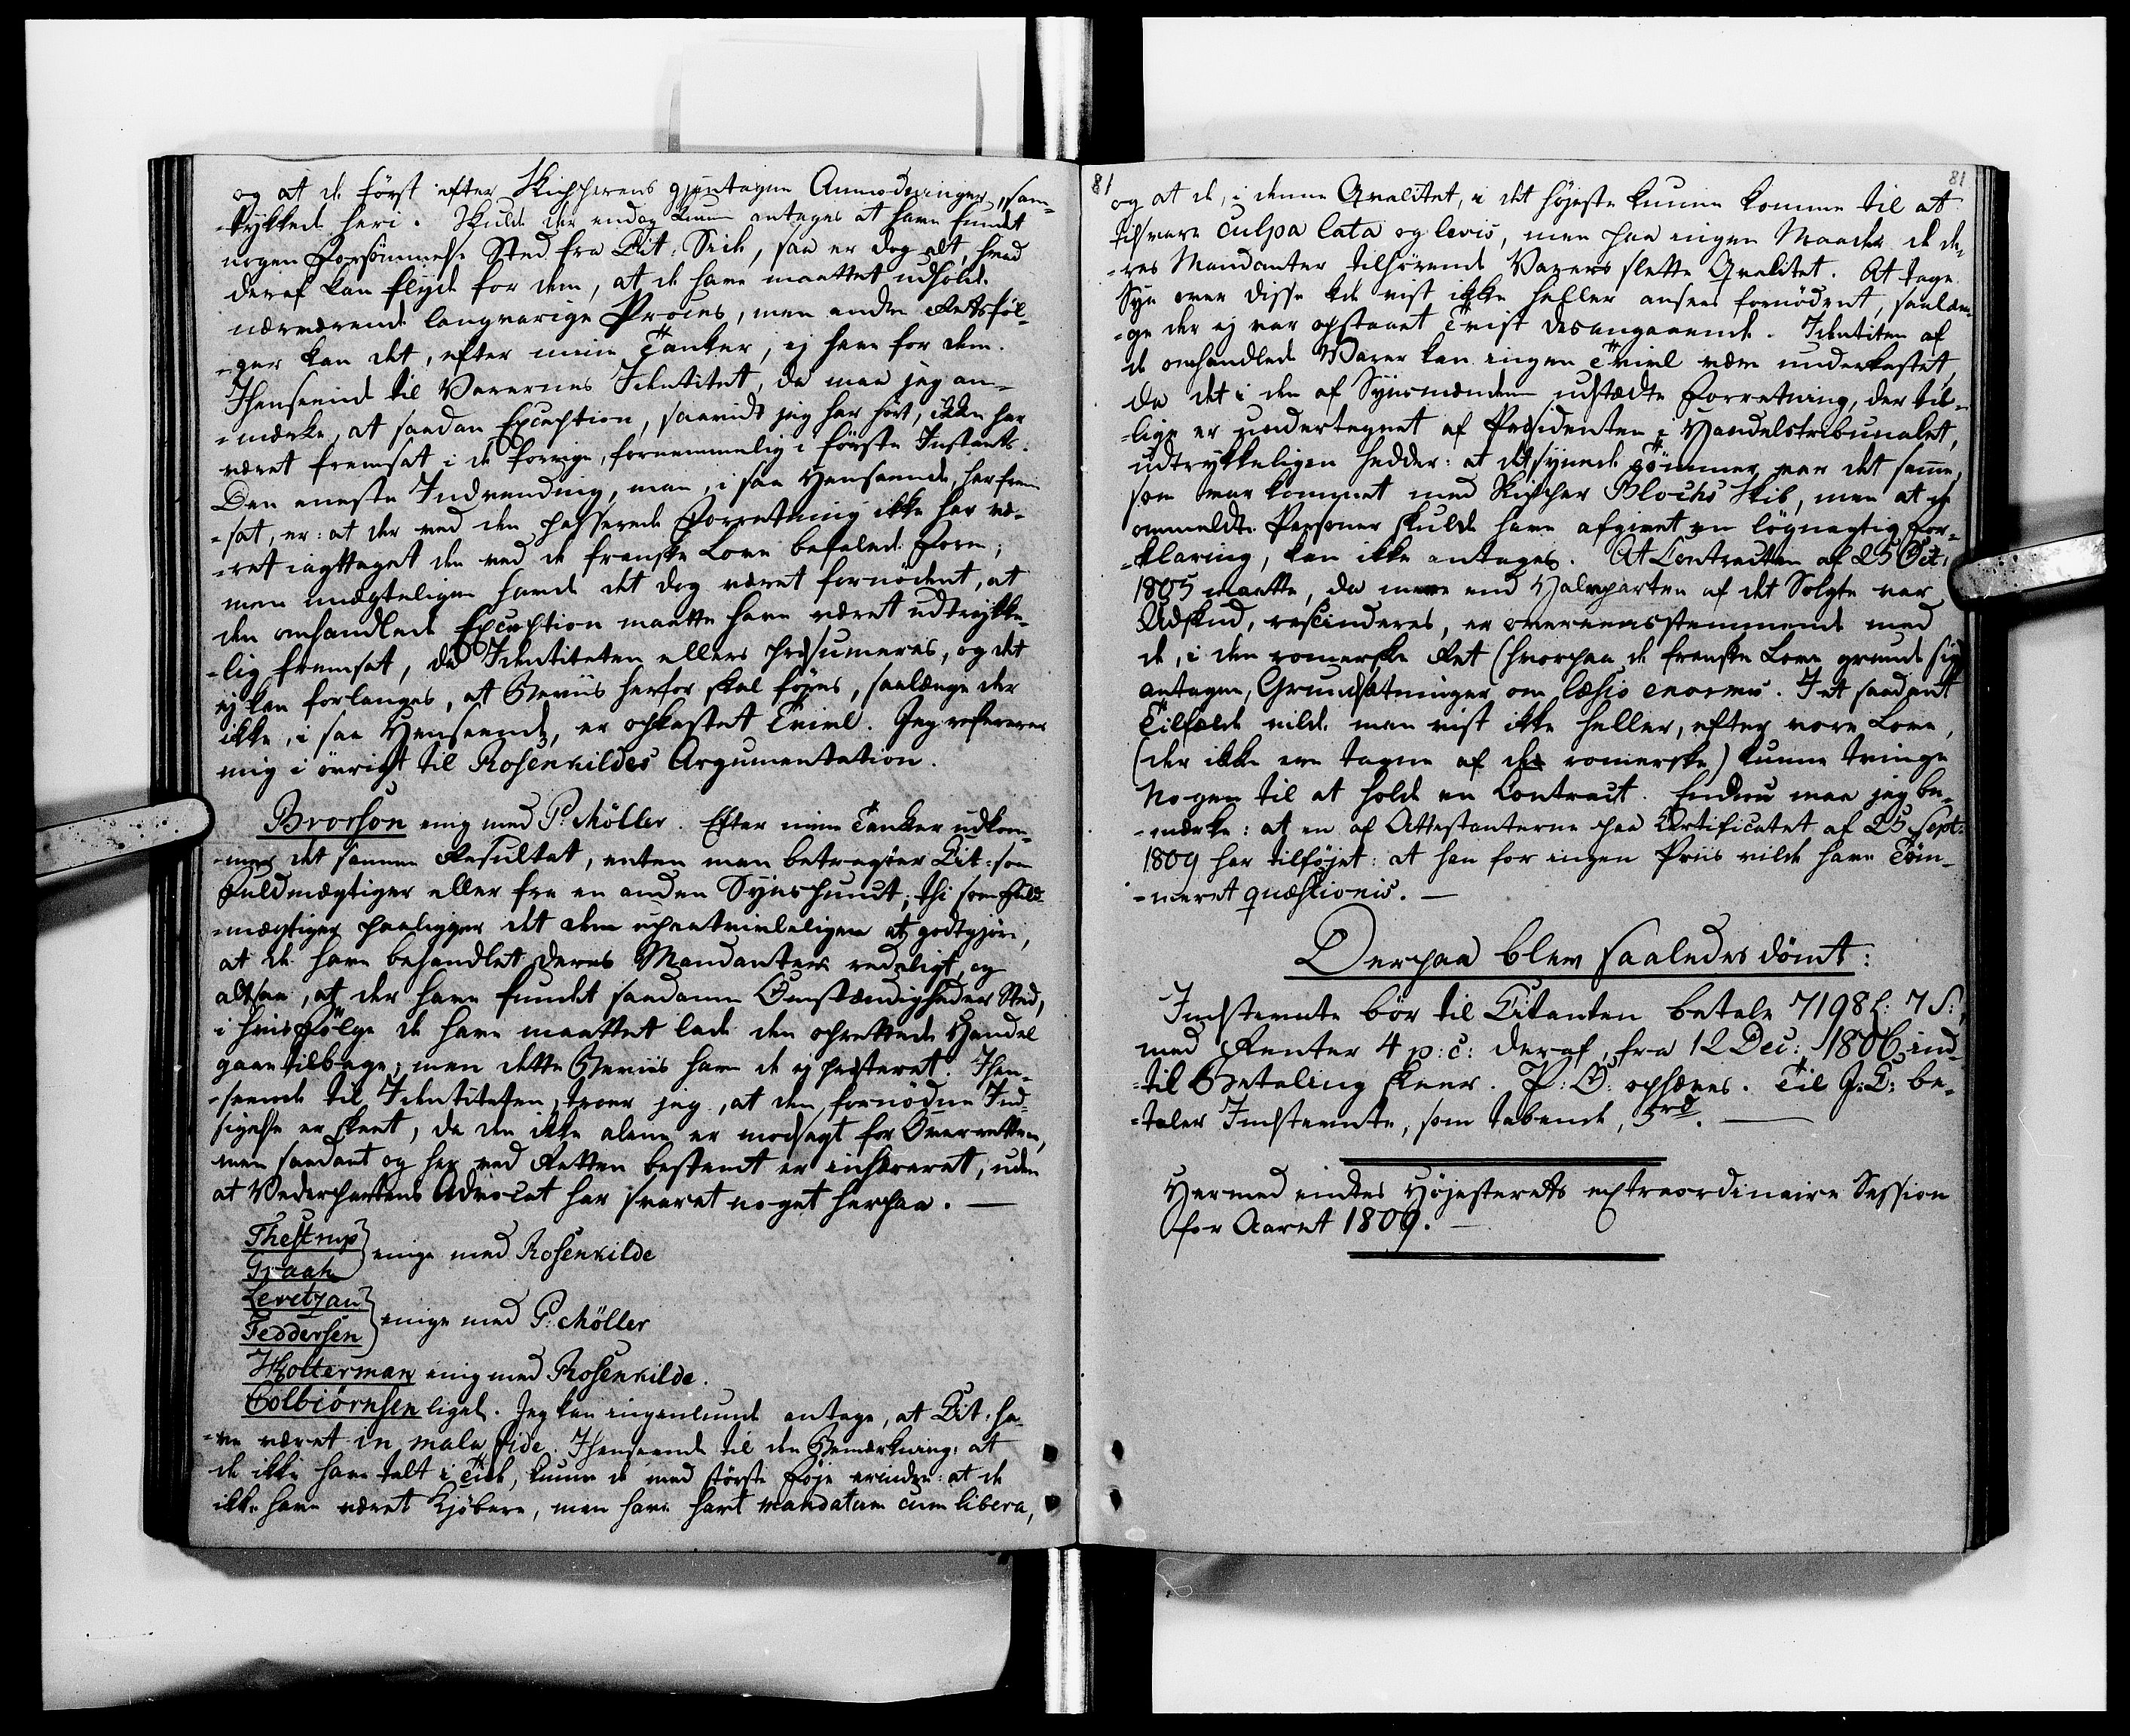 og at de først efter Skipperens gjentagne Anmodninger sam-
-tykkede heri. Skulde der endog kunne antages at have fundet
nogen Forsømmelse Sted fra Cit: Side, saa er dog alt, hvad
deraf kan flyde for dem, at de have maattet udholde
nærværende langvarige Proces, men andre Retsføl-
-ger kan det, efter mine Tanker, ej have for dem.
I Henseende til Varernes Identitet, da maa jeg an-
-mærke, at saadan Exception, saavidt jeg har hørt, ikke har
været fremsat i de forrige, fornemmelig i første Instants.
Den eneste Indvending, man, i saa Henseende, har frem-
-sat, er: at der ved den passerede Forretning ikke har væ-
-ret iagttaget den ved de franske Love befalede Form;
men unægteligen havde det dog været fornødent, at
den omhandlede Exception maatte have været udtrykke-
-lig fremsat, da Identiteten ellers præsumeres, og det
ej kan forlanges, at Beviis herfor skal føres, saalænge der
ikke, i saa Henseende, er opkastet Tvivl. Jeg refererer
mig i øvrigt til Rosenkildes Argumentation.
Brorson enig med P: Möller. Efter mine Tanker udkom-
-mer det samme Resultat, enten man betragter Cit: som
Fuldmægtiger eller fra en anden Synspunct; thi som Fuld-
-mægtiger paaligger det dem upaatvivleligen at godtgjøre,
at de have behandlet deres Mandanter redeligt, og
altsaa, at der have fundet saadanne Omstændigheder Sted,
i hvis Følge de have maattet lade den oprettede Handel
gaae tilbage; men dette Beviis have de ej præsteret. I Hen-
-seende til Identiteten, troer jeg, at den fornødne Ind-
sigelse er skeet, da den ikke alene er modsagt for Overretten,
men saadant og her ved Retten bestemt er inhæreret, uden
at Vederpartens Advocat har svaret noget herpaa. —
Thestrup
Graah } enige med Rosenkilde
Levetzau
Feddersen } enige med P: Möller
Kolterman enig med Rosenkilde.
Colbiørnsen ligel. Jeg kan ingenlunde antage, at Cit: ha-
-ve været in mala fide. I Henseende til den Bemærkning: at
de ikke have talt i Tide, kunne de med største Føje erindre: at de
ikke have været Kjøbere, men have havt mandatum cum libera,
81
81
og at de, i denne Qvalitet, i det højeste kunne komme til at
tilsvare culpa lata og levis, men paa ingen Maade de de-
-res Mandanter tilhørende Varers slette Qvalitet. At tage
Syn over disse kde vist ikke heller ansees fornødent, saalæn-
-ge der ej var opstaaet Tvist desangaaende. Identiten af
de omhandlede Varer kan ingen Tvivl være underkastet,
da det i den af Synsmændene udstædte Forretning, der til-
-lige er undertegnet af Præsidenten i Handelstribunalet,
udtrykkeligen hedder: at det synede Tømmer var det samme,
som var kommet med Skipper Blochs Skib, men at de
ommeldte Personer skulde have afgivet en løgnagtig For-
-klaring, kan ikke antages. At Contracten af 25 Oct:
1805 maatte, da mere end Halvparten af det Solgte var
Udskud, rescinderes, er overeensstemmende med
de, i den romerske Ret (hvorpaa de franske Love grunde sig)
antagne, Grundsætninger om læsio enormis. I et saadant
Tilfælde vilde man vist ikke heller, efter vore Love,
(der ikke ere tagne af de romerske) kunne tvinge
Nogen til at holde en Contract. Endnu maa jeg be-
-mærke: at en af Attestanterne paa Certificatet af 25 Sept:
1809 har tilføjet: at han for ingen Priis vilde have Tøm-
-meret quæstionis. —
Derpaa blev saaledes dømt:
Indstevnte bør til Citanten betale 7198 £: 7 S:,
med Renter 4 p: c: deraf, fra 12 Dec: 1806 ind-
-til Betaling skeer. P: O: ophæves. Til J: C: be-
-taler Indstevnte, som tabende, 5 rd. —
Hermed endtes Højesterets extraordinaire Session
for Aaret 1809. —